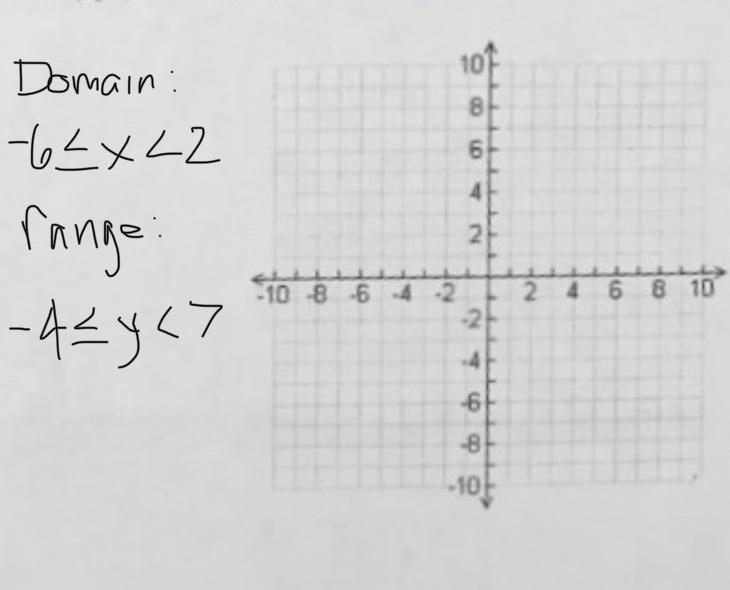 Domain:
-6≤x<2
range:
-4≤y<7
10
8
6
4
2
-10 -8 -6 -4 -2 2 4 6 8 10
-2
-4
-6
-8
-10